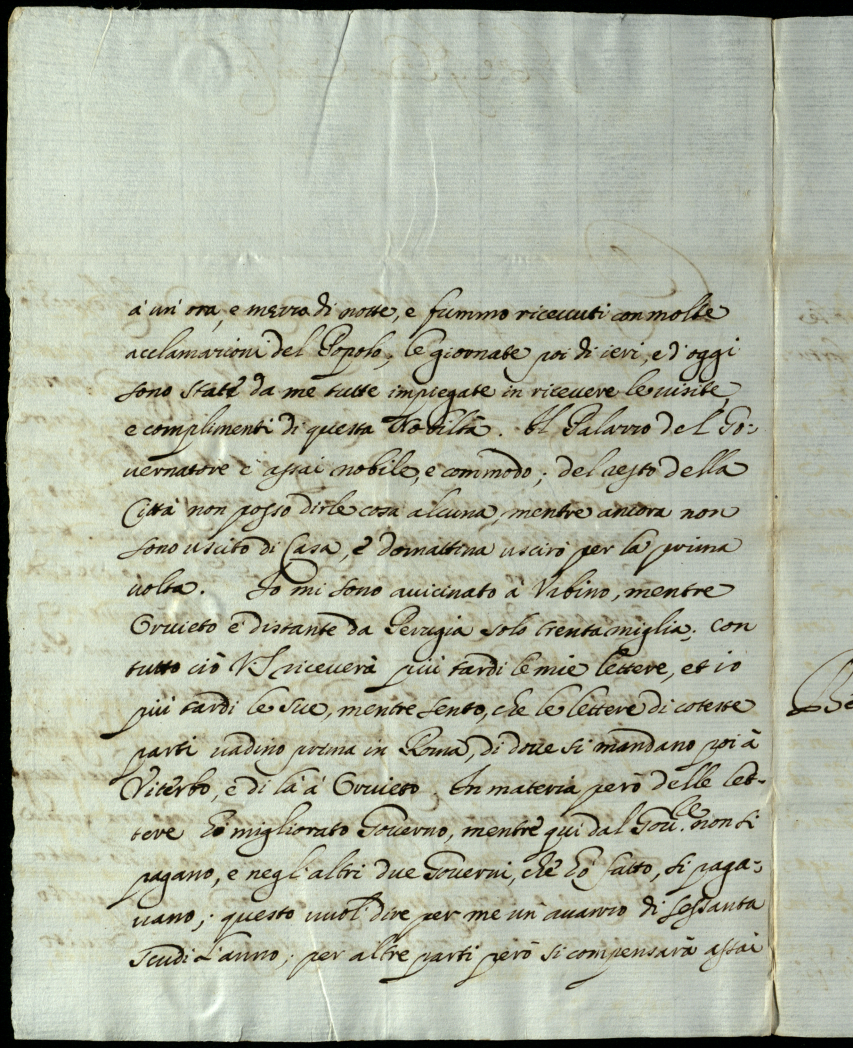 à un' ora, e mezza di notte, e fummo riceuuti con molte
acclamazioni del Popolo; le giornate poi di ieri, e d'oggi
sono state da me tutte impiegate in riceuere le uisite,
e complimenti di questa Nobiltà. Il Palazzo del Go:
uernatore è assai nobile, e commodo; del resto della
Città non posso dirle cosa alcuna, mentre ancora non
sono uscito di Casa, e domattina uscirò per la prima
uolta. Io mi sono auuicinato à Vrbino, mentre
Oruieto è distante da Perugia solo trenta miglia; con
tutto ciò V.S. riceuerà più tardi le mie lettere, et io
più tardi le sue, mentre sento, che le lettere di coteste
parti uadino prima in Roma, di doue si mandano poi à
Viterbo, e di là à Oruieto. In materia però delle let-
tere hò migliorato Gouerno, mentre qui dal Gou.re non si
pagano, e negl'altri due Gouerni, che hò fatto, si paga:
uano; questo uuol dire per me un auanzo di sessanta
scudi l'anno; per altre parti però si compensarà assai
Be